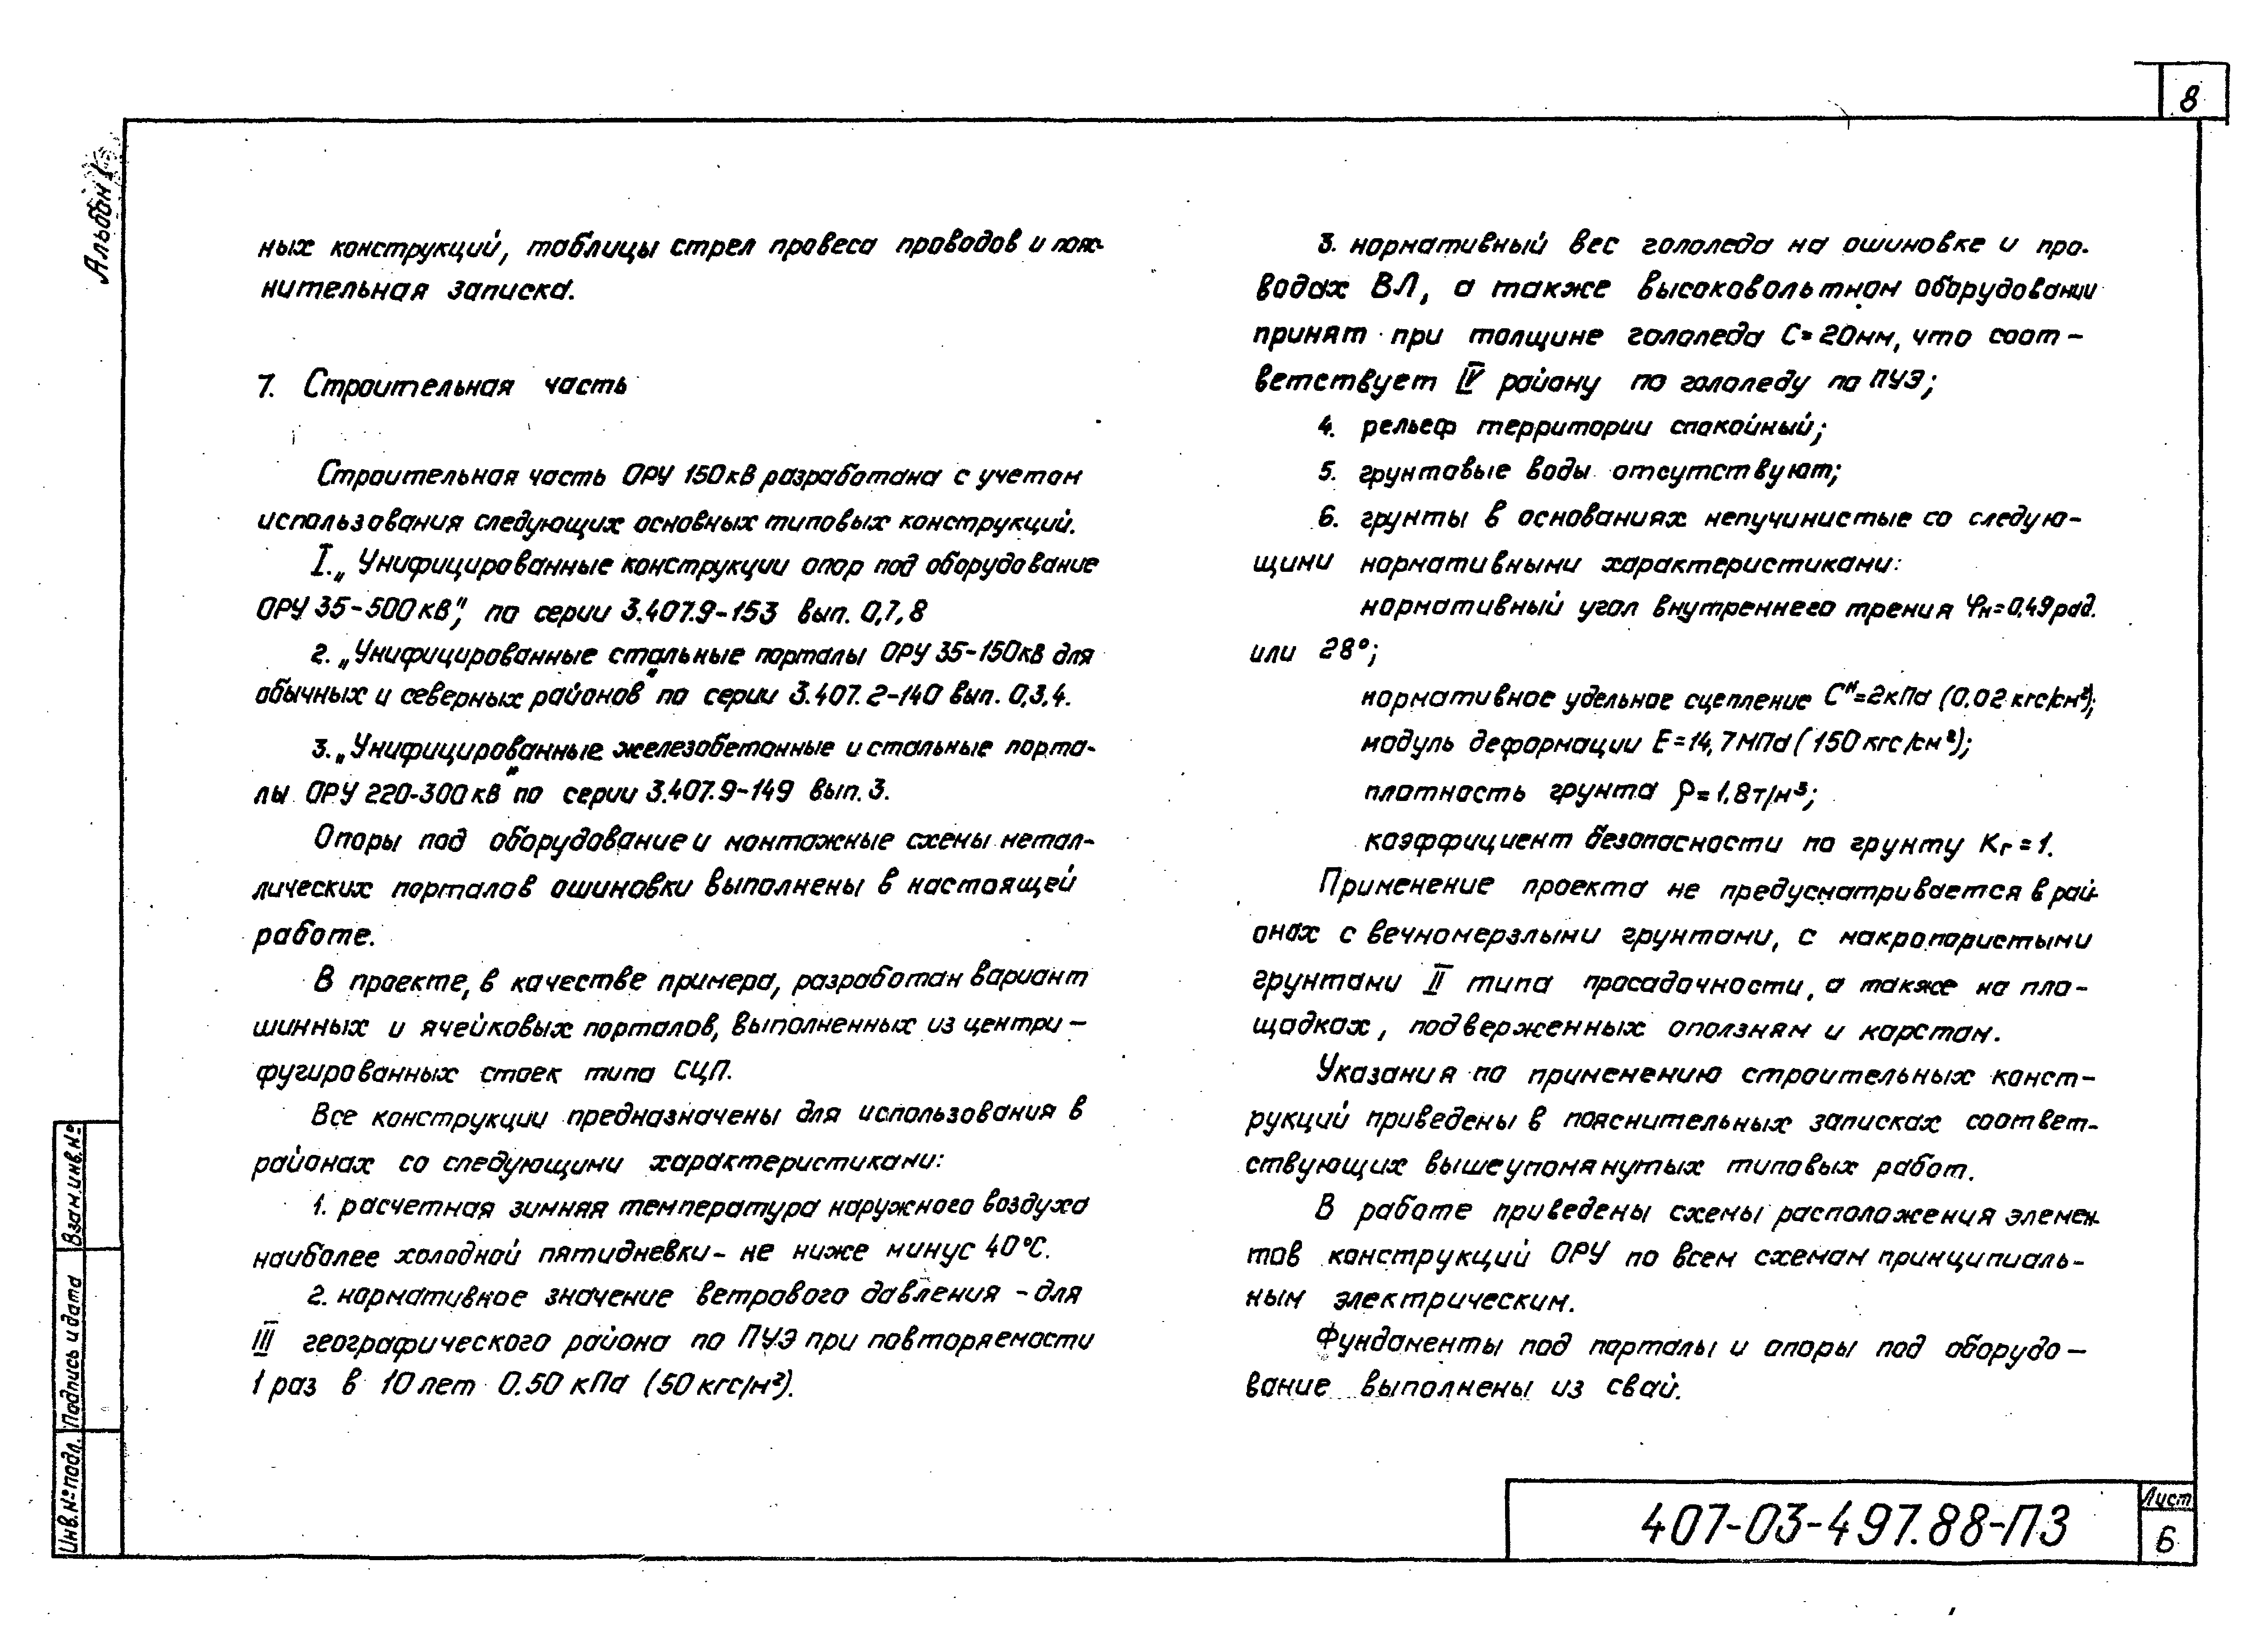 8
Альбом I
ных конструкций, таблицы стрел провеса проводов и пояс-
нительная записка.
7. Строительная часть
Строительная часть ОРУ 150кВ разработана с учетом
использования следующих основных типовых конструкций.
I. „Унифицированные конструкции опор под оборудование
ОРУ 35-500кВ", по серии 3.407.9-153 вып. 0,7,8
2. „Унифицированные стальные порталы ОРУ 35-150кВ для
обычных и северных районов" по серии 3.407.2-140 вып. 0,3,4.
3. „Унифицированные железобетонные и стальные порта-
лы ОРУ 220-300кВ" по серии 3.407.9-149 вып. 3.
Опоры под оборудование и монтажные схемы метал-
лических порталов ошиновки выполнены в настоящей
работе.
В проекте, в качестве примера, разработан вариант
шинных и ячейковых порталов, выполненных из центри-
фугированных стоек типа СЦП.
Все конструкции предназначены для использования в
районах со следующими характеристиками:
1. расчетная зимняя температура наружного воздуха
наиболее холодной пятидневки - не ниже минус 40°С.
2. нормативное значение ветрового давления - для
III географического района по ПУЭ при повторяемости
1 раз в 10 лет 0.50 кПа (50 кгс/м²).
3. нормативный вес гололеда на ошиновке и про-
водах ВЛ, а также высоковольтном оборудовании
принят при толщине гололеда С=20мм, что соот-
ветствует IV району по гололеду по ПУЭ;
4. рельеф территории спокойный;
5. грунтовые воды отсутствуют;
6. грунты в основаниях непучинистые со следую-
щими нормативными характеристиками:
нормативный угол внутреннего трения φн=0,49рад.
или 28°;
нормативное удельное сцепление Сн=2кПа (0.02 кгс/см²);
модуль деформации Е=14,7МПа (150 кгс/см²);
плотность грунта ρ=1.8т/м³;
коэффициент безопасности по грунту Кг=1.
Применение проекта не предусматривается в рай-
онах с вечномерзлыми грунтами, с макропористыми
грунтами II типа просадочности, а также на пло-
щадках, подверженных оползням и карстам.
Указания по применению строительных конст-
рукций приведены в пояснительных записках соответ-
ствующих вышеупомянутых типовых работ.
В работе приведены схемы расположения элемен-
тов конструкций ОРУ по всем схемам принципиаль-
ным электрическим.
Фундаменты под порталы и опоры под оборудо-
вание выполнены из свай.
Инв.№подл. Подпись и дата Взам.инв.№
407-03-497.88-ПЗ
Лист
6